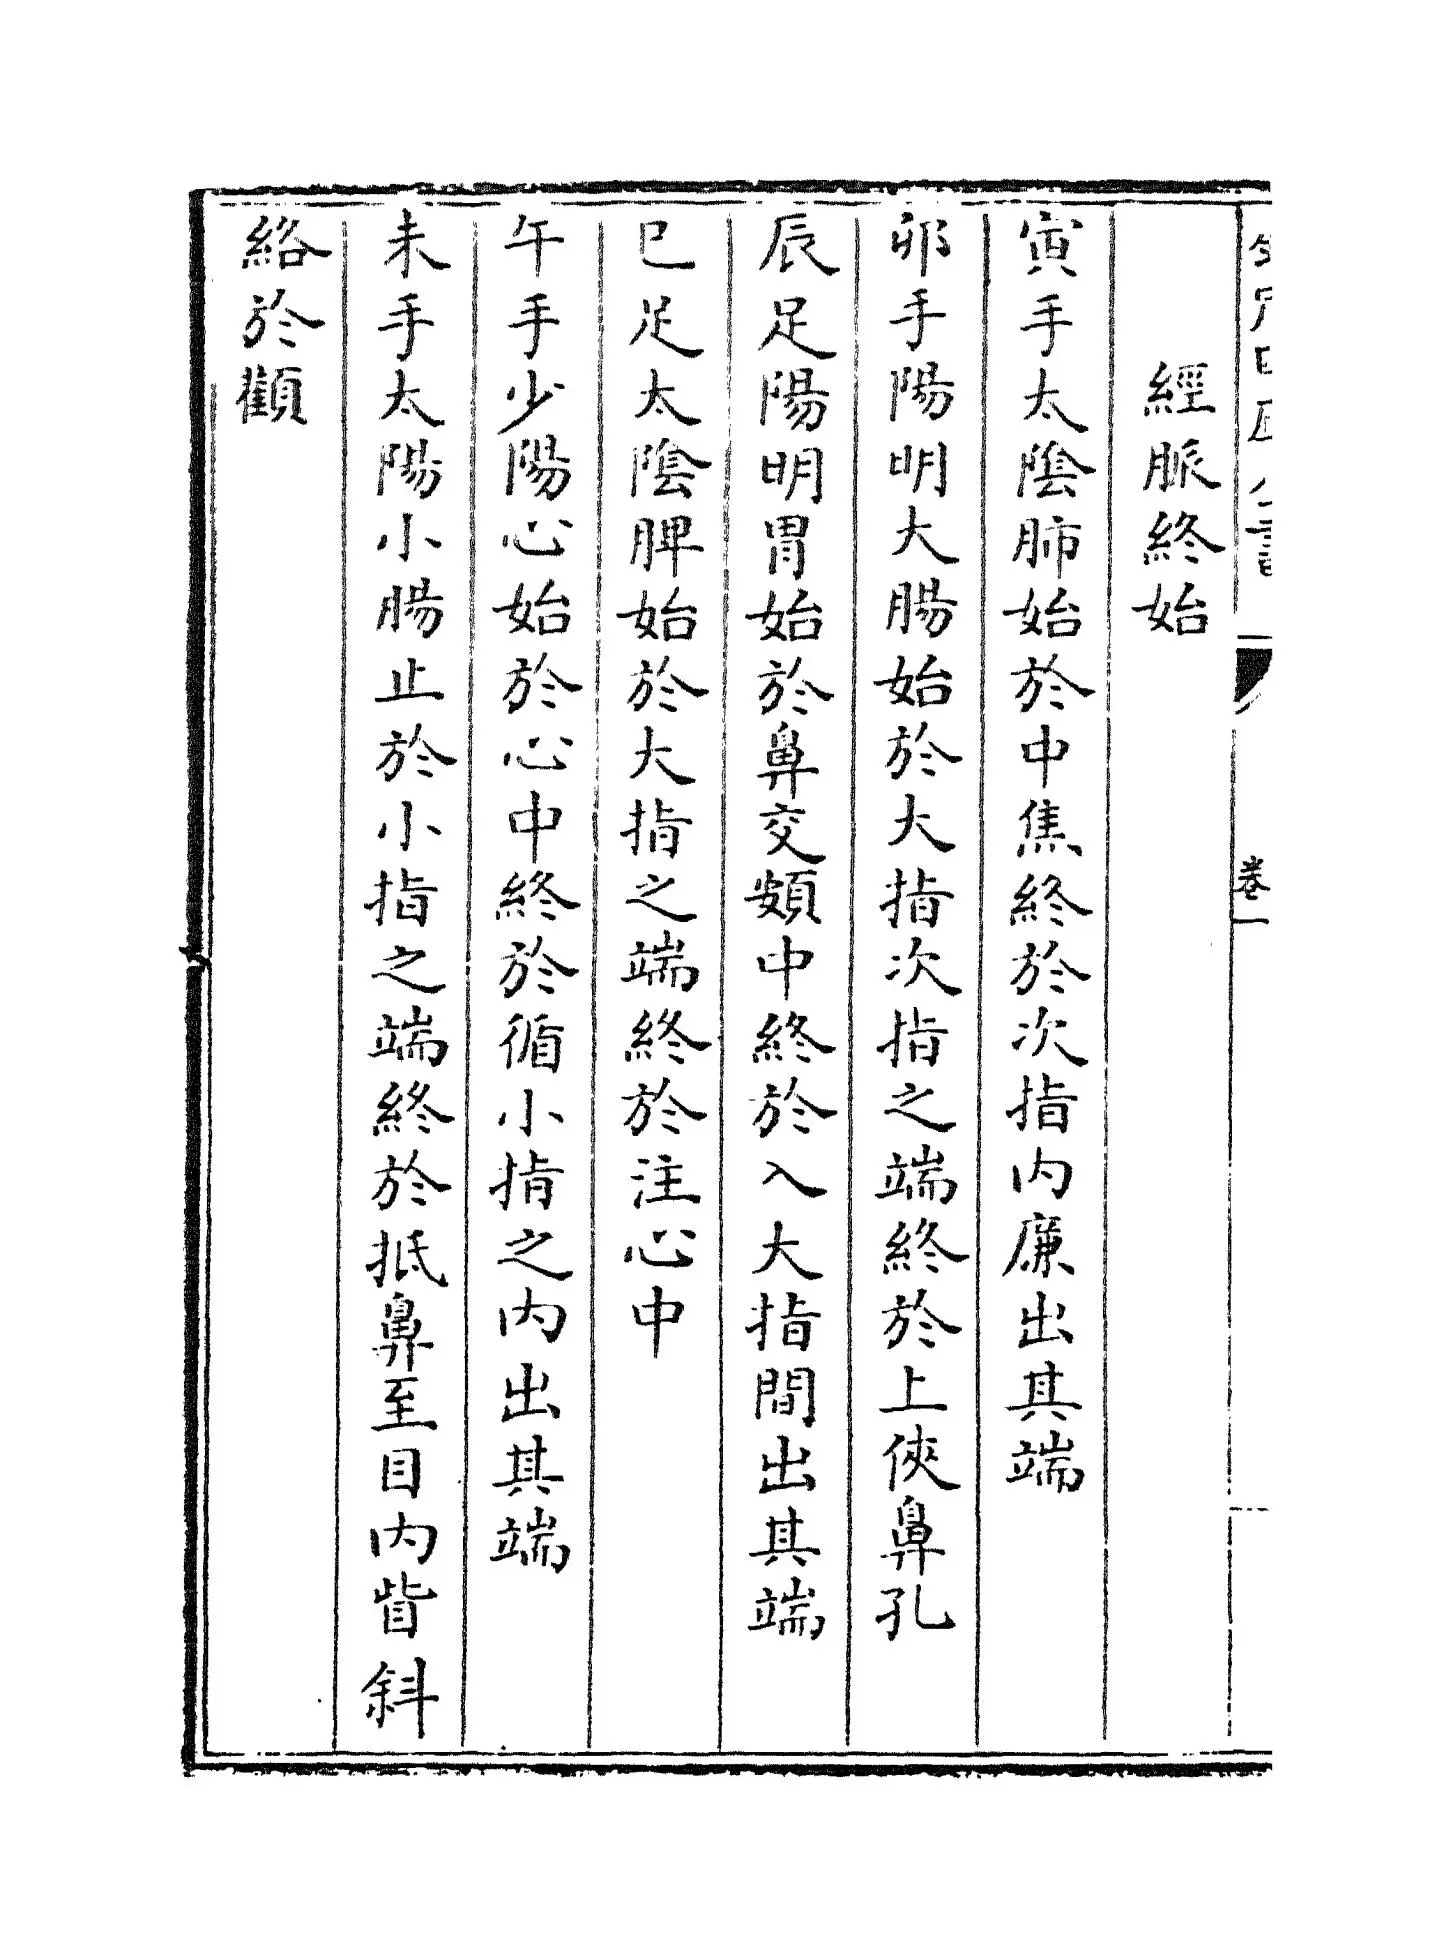 經脈終始
寅手太陰肺始於中焦終於次指内廉出其端
卯手陽明大腸始於大指次指之端終於上俠鼻孔
辰足陽明胃始於鼻交頞中終於入大指間出其端
巳足太陰脾始於大指之端終於注心中
午手少陽心始於心中終於循小指之内出其端
未手太陽小腸止於小指之端終於抵鼻至目内眥斜
絡於顴
卷一